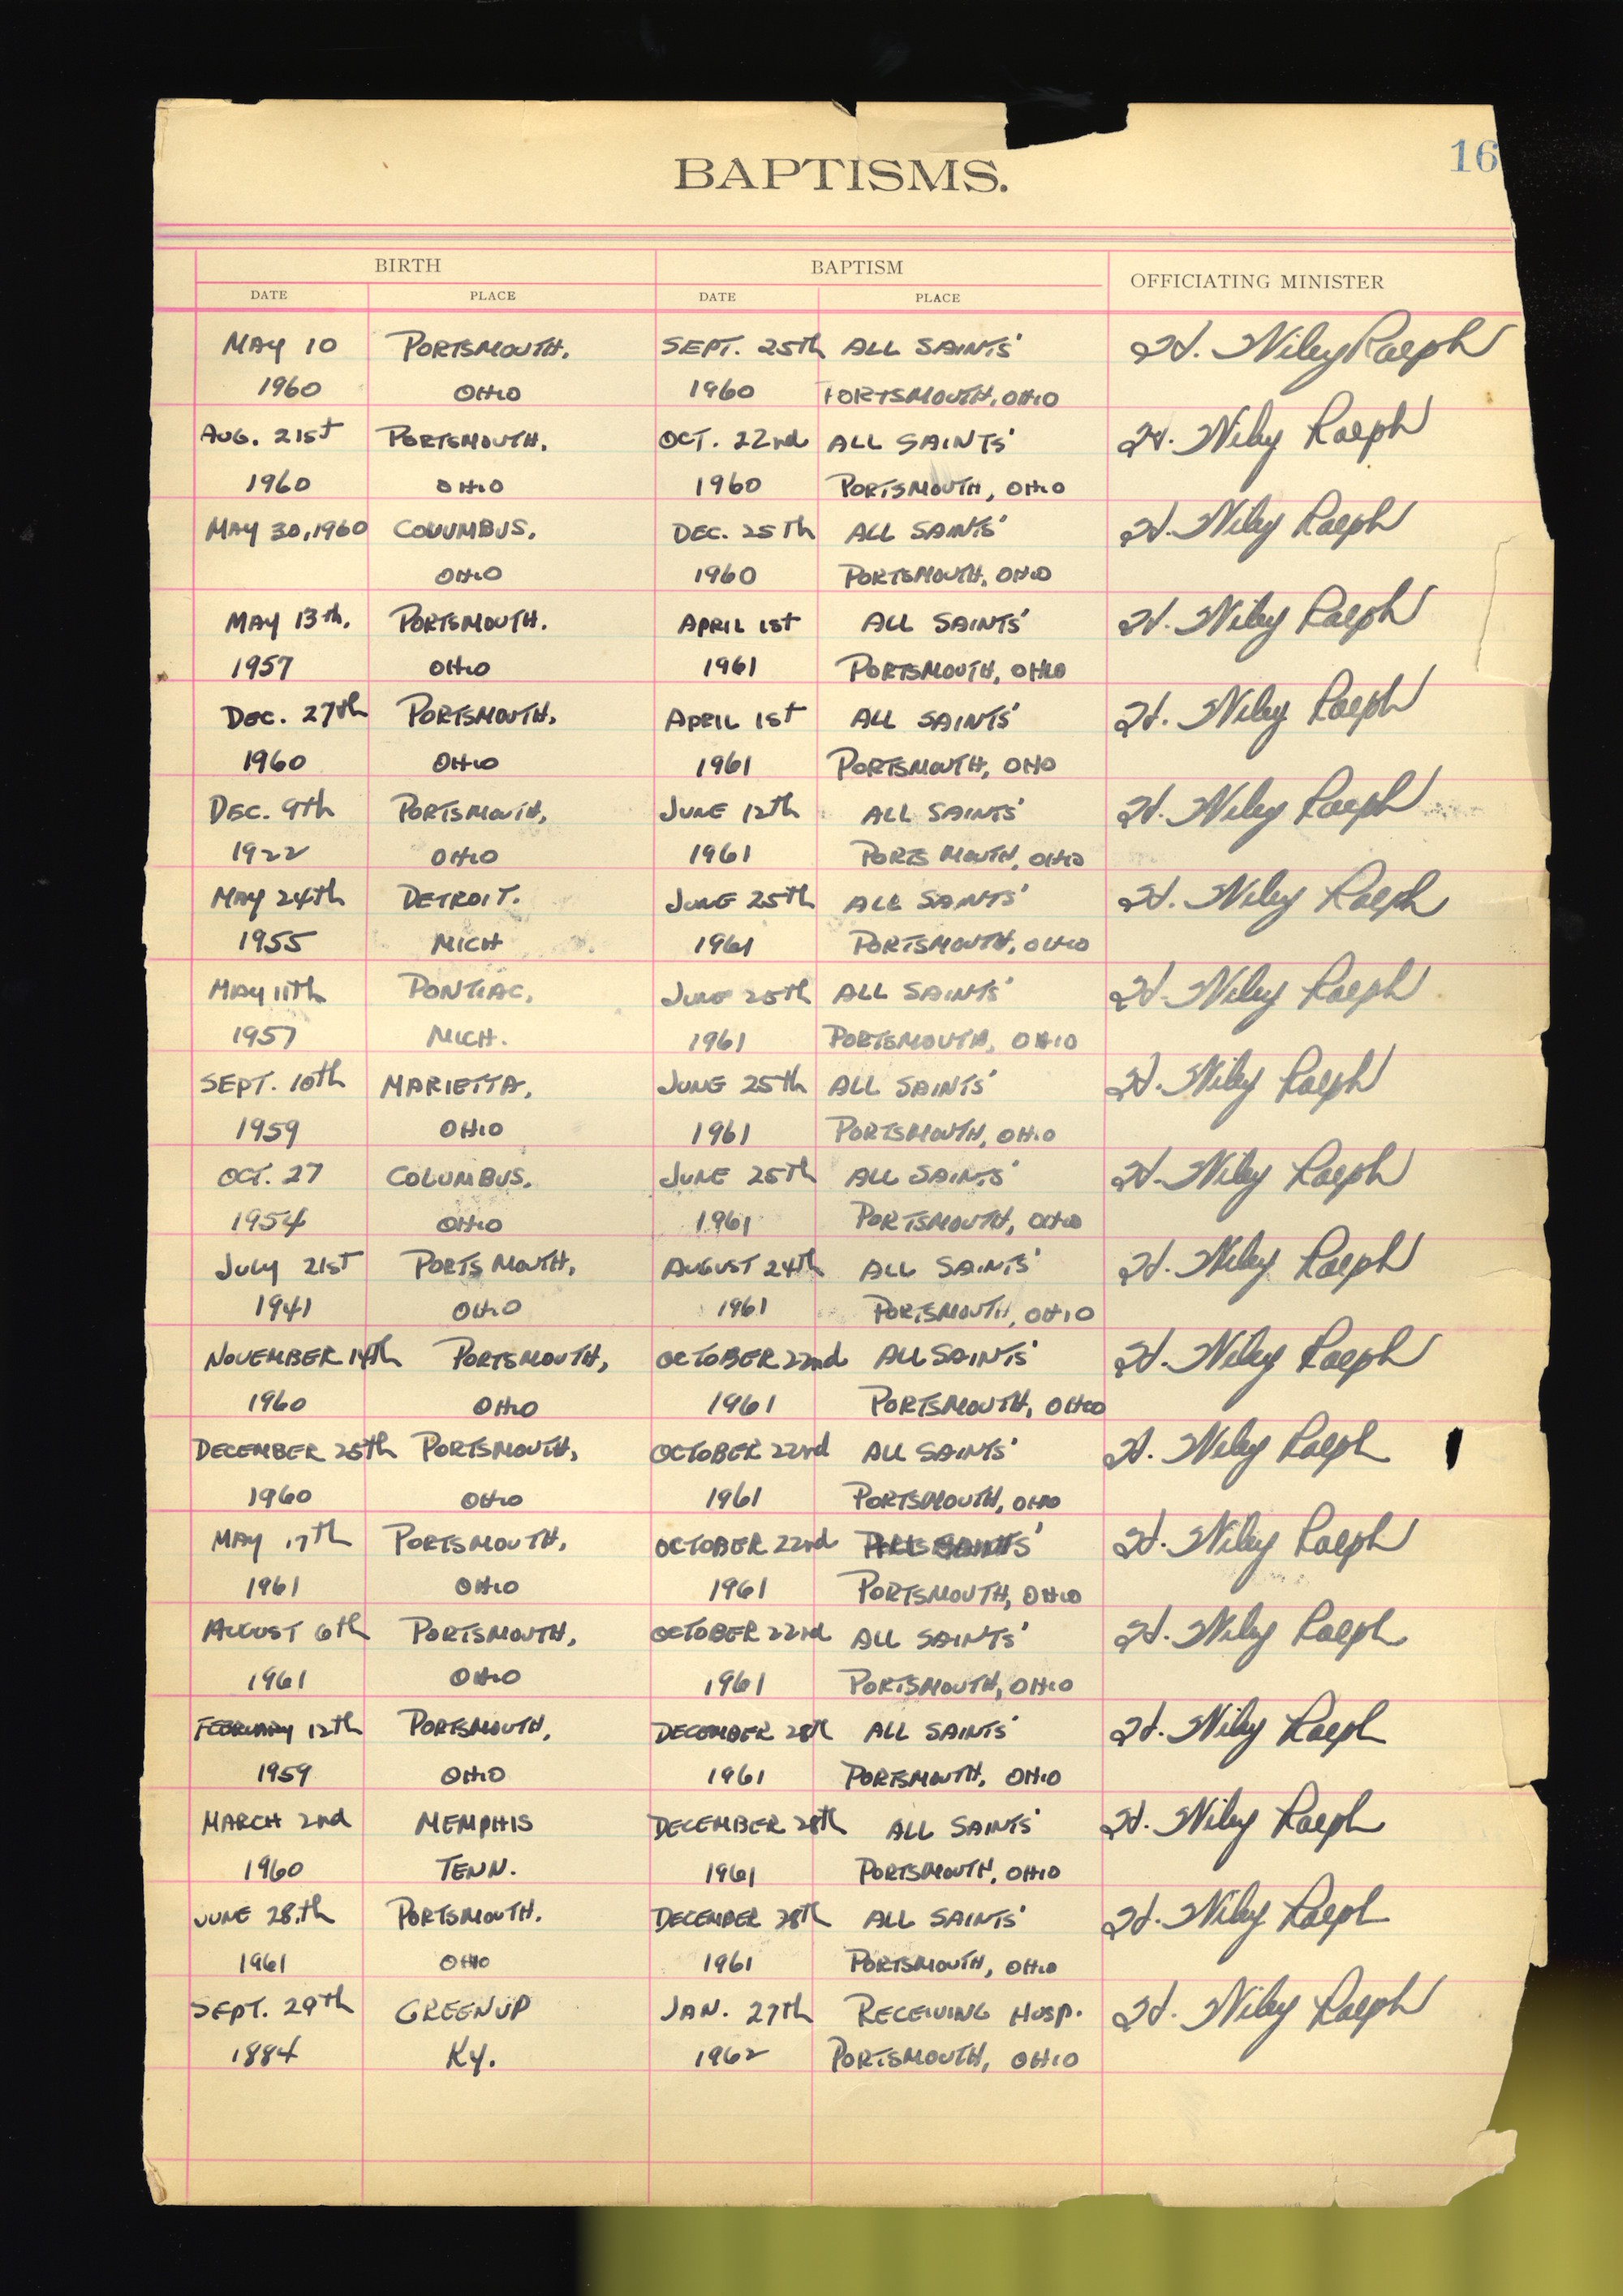 16
BAPTISMS.
BIRTH BAPTISM OFFICIATING MINISTER
DATE PLACE DATE PLACE
MAY 10 PORTSMOUTH, SEPT. 25th ALL SAINTS' H. Wiley Ralph
1960 OHIO 1960 PORTSMOUTH, OHIO
AUG. 21st PORTSMOUTH, OCT. 22nd ALL SAINTS' H. Wiley Ralph
1960 OHIO 1960 PORTSMOUTH, OHIO
MAY 30, 1960 COLUMBUS, DEC. 25th ALL SAINTS' H. Wiley Ralph
OHIO 1960 PORTSMOUTH, OHIO
MAY 13th, PORTSMOUTH. APRIL 1st ALL SAINTS' H. Wiley Ralph
1957 OHIO 1961 PORTSMOUTH, OHIO
DEC. 27th PORTSMOUTH, APRIL 1st ALL SAINTS' H. Wiley Ralph
1960 OHIO 1961 PORTSMOUTH, OHIO
DEC. 9th PORTSMOUTH, JUNE 12th ALL SAINTS' H. Wiley Ralph
1922 OHIO 1961 PORTSMOUTH, OHIO
MAY 24th DETROIT. JUNE 25th ALL SAINTS' H. Wiley Ralph
1955 MICH 1961 PORTSMOUTH, OHIO
MAY 11th PONTIAC, JUNE 25th ALL SAINTS' H. Wiley Ralph
1957 MICH. 1961 PORTSMOUTH, OHIO
SEPT. 10th MARIETTA, JUNE 25th ALL SAINTS' H. Wiley Ralph
1959 OHIO 1961 PORTSMOUTH, OHIO
OCT. 27 COLUMBUS, JUNE 25th ALL SAINTS' H. Wiley Ralph
1954 OHIO 1961 PORTSMOUTH, OHIO
JULY 21st PORTSMOUTH, AUGUST 24th ALL SAINTS' H. Wiley Ralph
1941 OHIO 1961 PORTSMOUTH, OHIO
NOVEMBER 14th PORTSMOUTH, OCTOBER 22nd ALL SAINTS' H. Wiley Ralph
1960 OHIO 1961 PORTSMOUTH, OHIO
DECEMBER 25th PORTSMOUTH, OCTOBER 22nd ALL SAINTS' H. Wiley Ralph
1960 OHIO 1961 PORTSMOUTH, OHIO
MAY 17th PORTSMOUTH, OCTOBER 22nd ALL SAINTS' H. Wiley Ralph
1961 OHIO 1961 PORTSMOUTH, OHIO
AUGUST 6th PORTSMOUTH, OCTOBER 22nd ALL SAINTS' H. Wiley Ralph
1961 OHIO 1961 PORTSMOUTH, OHIO
FEBRUARY 12th PORTSMOUTH, DECEMBER 28th ALL SAINTS' H. Wiley Ralph
1959 OHIO 1961 PORTSMOUTH, OHIO
MARCH 2nd MEMPHIS DECEMBER 28th ALL SAINTS' H. Wiley Ralph
1960 TENN. 1961 PORTSMOUTH, OHIO
JUNE 28.th PORTSMOUTH. DECEMBER 28th ALL SAINTS' H. Wiley Ralph
1961 OHIO 1961 PORTSMOUTH, OHIO
SEPT. 29th GREENUP JAN. 27th RECEIVING HOSP. H. Wiley Ralph
1884 KY. 1962 PORTSMOUTH, OHIO